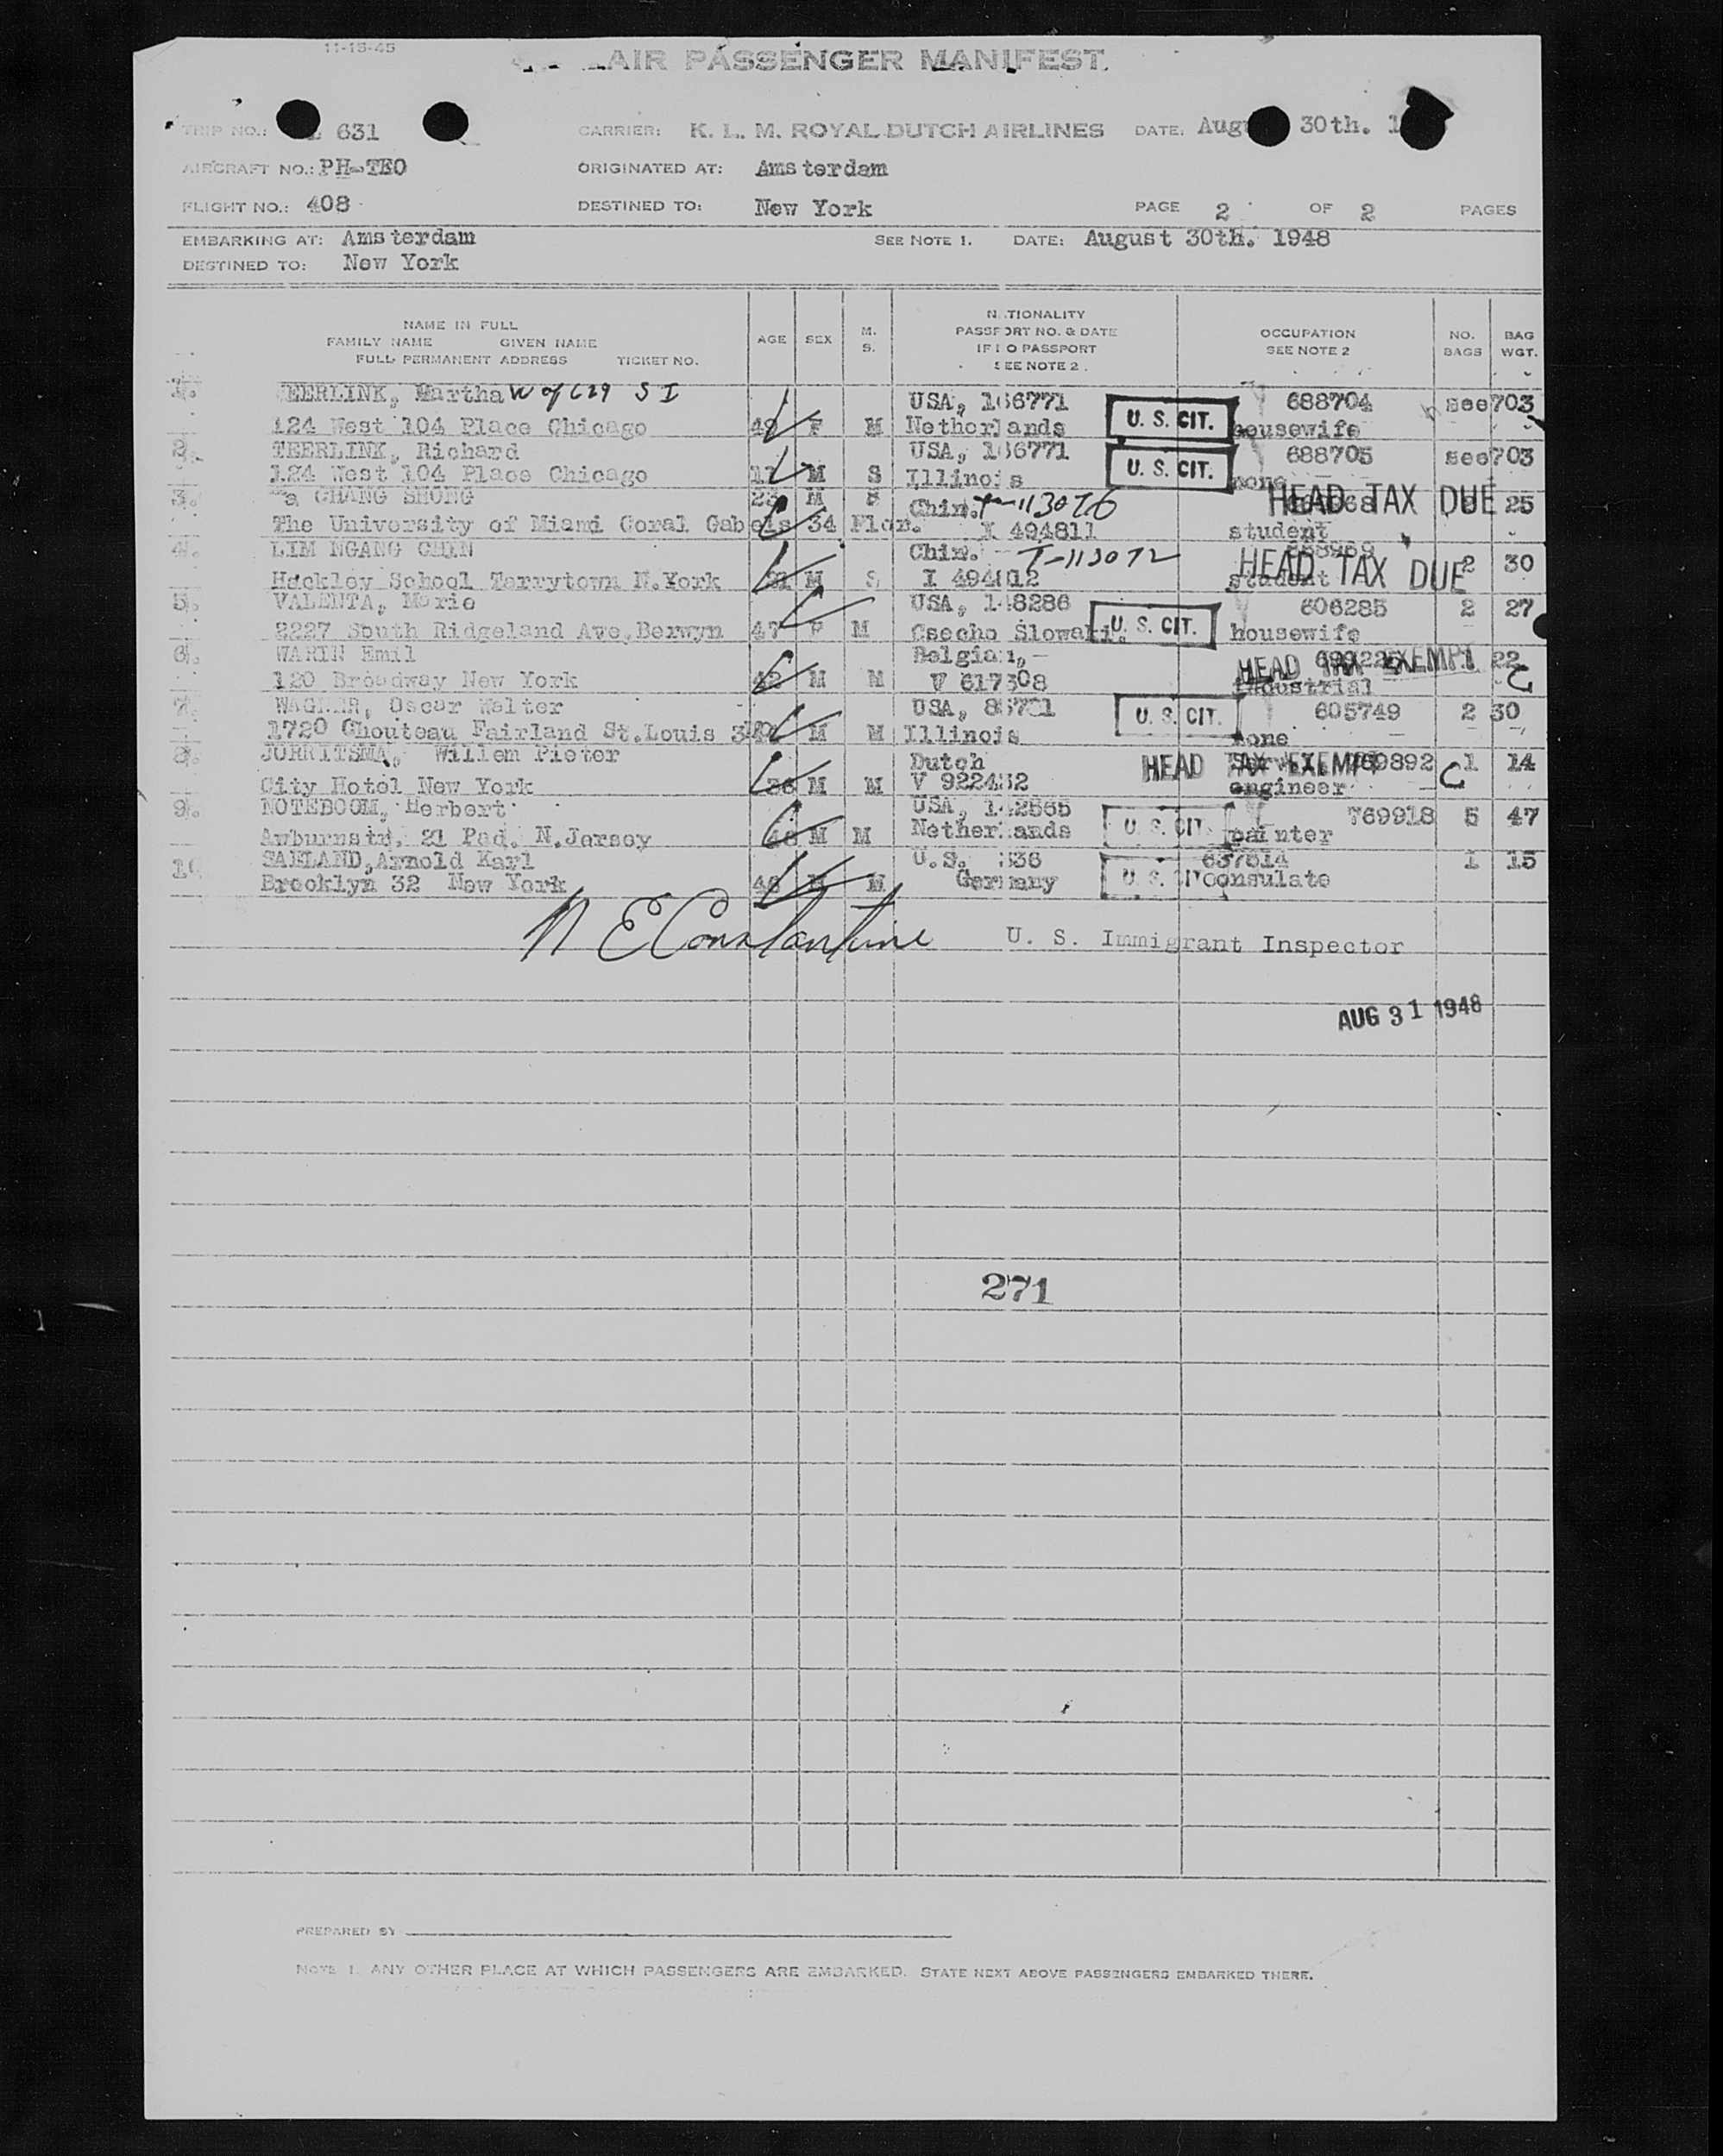 11-15-45
AIR PASSENGER MANIFEST.
TRIP NO.: 631 CARRIER: K. L. M. ROYAL DUTCH AIRLINES DATE: Aug 30th. 1
AIRCRAFT NO.: PH-TEO ORIGINATED AT: Amsterdam
FLIGHT NO.: 408 DESTINED TO: New York PAGE 2 OF 2 PAGES
EMBARKING AT: Amsterdam SEE NOTE 1. DATE: August 30th. 1948
DESTINED TO: New York
NAME IN FULL
FAMILY NAME GIVEN NAME
FULL PERMANENT ADDRESS TICKET NO.
AGE SEX M. S.
NATIONALITY
PASSPORT NO. & DATE
IF NO PASSPORT
SEE NOTE 2.
OCCUPATION
SEE NOTE 2
NO. BAGS
BAG WGT.
1. TEERLINK, Martha W of C29 S I USA, 166771 688704 see703
124 West 104 Place Chicago F M Netherlands U. S. CIT. housewife
2. TEERLINK, Richard USA, 166771 688705 see703
124 West 104 Place Chicago 11 M S Illinois U. S. CIT. none
3. CHANG SHONG 23 M S Chin. T-113076 HEAD TAX DUE 25
The University of Miami Coral Gabels 34 Flor. I 494811 student
4. LIM NGANG CHIN Chin. T-113072 688969 2 30
Hackley School Tarrytown N.York 21 M S I 494812 student HEAD TAX DUE
5. VALENTA, Marie USA, 148286 606285 2 27
2227 South Ridgeland Ave,Berwyn 47 F M Csecho Slowakia U. S. CIT. housewife
6. WARIN Emil Belgian, HEAD TAX EXEMPT 1 22
120 Broadway New York 42 M M V 617308 industrial
7. WAGNER, Oscar Walter USA, 605749 2 30
1720 Chouteau Fairland St.Louis M M Illinois U. S. CIT. none
8. JURRITSMA, Willem Pieter Dutch HEAD TAX EXEMPT 769892 1 14
City Hotel New York 36 M M V 922432 engineer
9. NOTEBOOM, Herbert USA, 142565 769918 5 47
21 Pad. N.Jersey 48 M M Netherlands U. S. CIT. painter
10 SAHLAND,Arnold Karl U.S. 637614 1 15
Brooklyn 32 New York 46 M M Germany U. S. Consulate
N E Constantine U. S. Immigrant Inspector
AUG 31 1948
271
PREPARED BY
NOTE 1. ANY OTHER PLACE AT WHICH PASSENGERS ARE EMBARKED. STATE NEXT ABOVE PASSENGERS EMBARKED THERE.